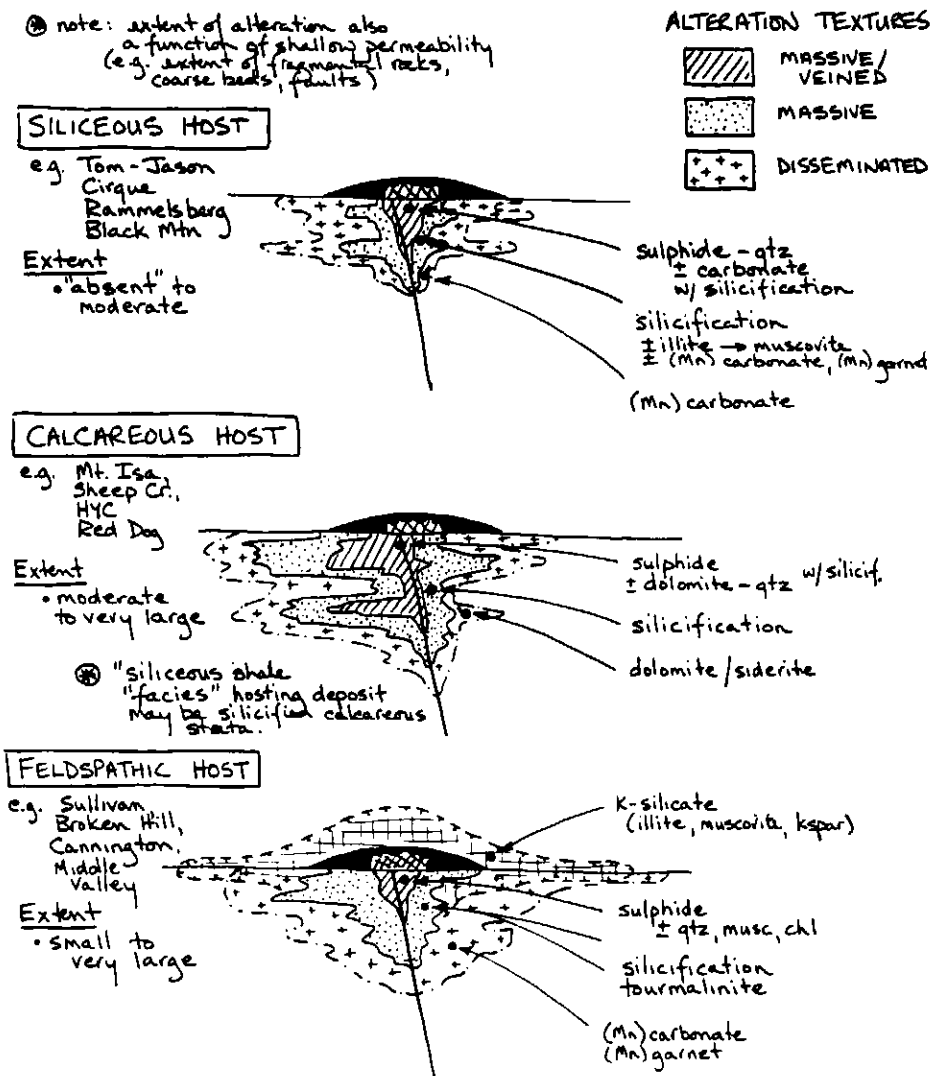 ⊛ note: extent of alteration also
a function of shallow permeability
(e.g. extent of fragmental rocks,
coarse beds, faults)
ALTERATION TEXTURES
MASSIVE/
VEINED
MASSIVE
DISSEMINATED
SILICEOUS HOST
e.g. Tom-Jason
Cirque
Rammelsberg
Black Mtn
Extent
• "absent" to
moderate
sulphide - qtz
± carbonate
w/ silicification
silicification
± illite → muscovite
± (Mn) carbonate, (Mn) garnet
(Mn) carbonate
CALCAREOUS HOST
e.g. Mt. Isa,
Sheep Cr.,
HYC
Red Dog
Extent
• moderate
to very large
⊛ "siliceous shale
"facies" hosting deposit
may be silicified calcareous
strata.
sulphide
± dolomite - qtz w/ silicif.
silicification
dolomite / siderite
FELDSPATHIC HOST
e.g. Sullivan,
Broken Hill,
Cannington,
Middle
Valley
Extent
• small to
very large
K-silicate
(illite, muscovite, kspar)
sulphide
± qtz, musc, chl
silicification
tourmalinite
(Mn) carbonate
(Mn) garnet